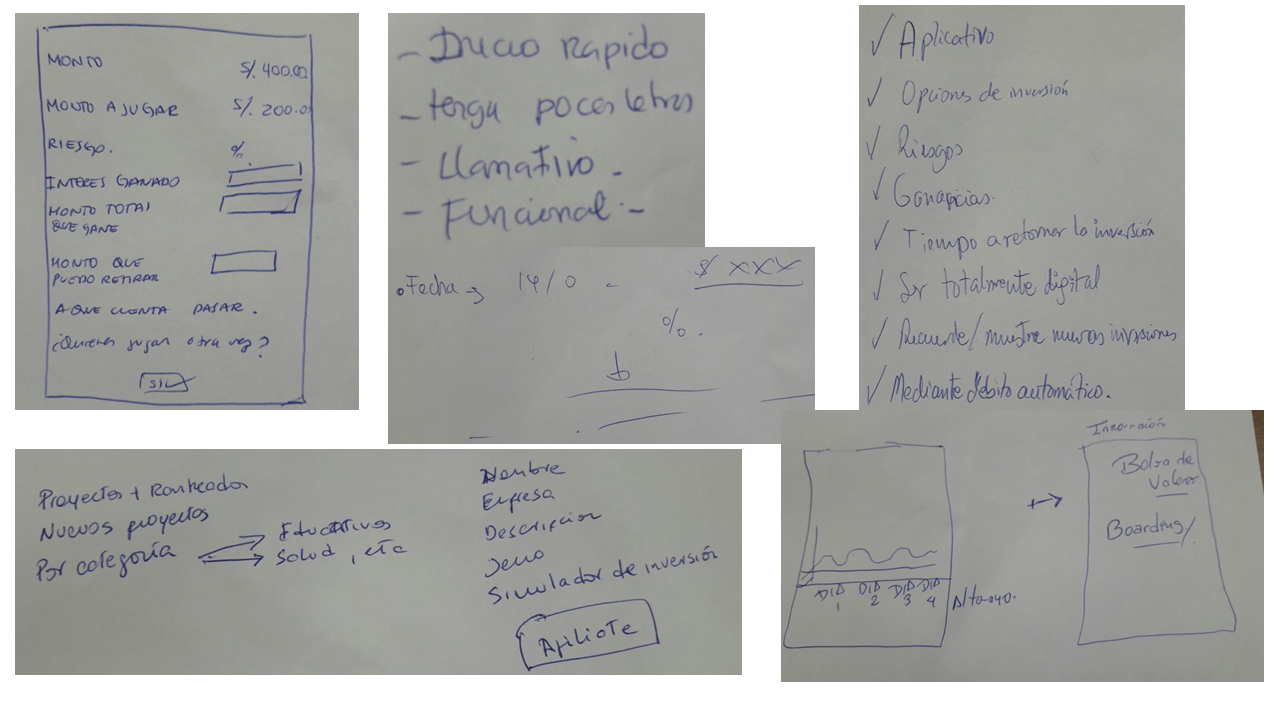 MONTO S/. 400.00
MONTO A JUGAR S/. 200.0
RIESGO. %.
INTERES GANADO
MONTO TOTAL
QUE GANE
MONTO QUE
PUEDO RETIRAR
A QUE CUENTA PASAR.
¿Quieres jugar otra vez?
SI
- rapido
- tenga pocas letras
- Llamativo.
- Funcional.-
Fecha → 14/0 - $ XXX
%.
✓ Aplicativo
✓ Opciones de inversión
✓ Riesgos
✓ Ganancias.
✓ Tiempo a retornar la inversión
✓ Ser totalmente digital
✓ Recuerde/muestre nuevas inversiones
✓ Mediante débito automático.
Proyectos + Rankeados
Nuevos proyectos
Por categoría → Educativos
→ Salud, etc
Nombre
Empresa
Descripcion
Demo
Simulador de inversión
Afiliate
DIA 1 DIA 2 DIA 3 DIA 4
→
Bolsa de
Valores
Boarding/